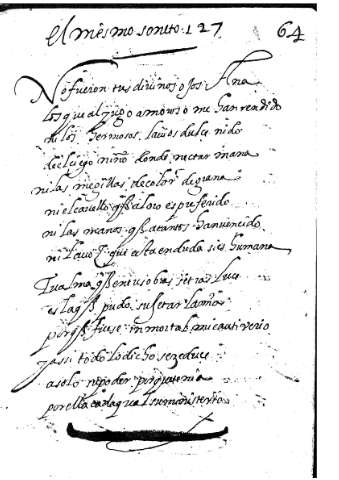 el mesmo soneto 127 64
No fueron tus divinos ojos Ana
los que al yugo amoroso me han rendido
ni los hermosos lavios dulce nido
del ciego niño donde nectar mana
ni las megillas de color de grana
ni el cavello q̃ al oro es preferido
ni las manos q̃ a tantos han vencido
ni la voz que esta en duda si es humana
Tu alma q̃ en tus obras se trasluce
es la q̃ pudo sujetar la mia
porq̃ fuese inmortal mi cautiverio
y assi todo lo dicho se reduce
a solo su poder porque tenia
por ella cada qual su ministerio